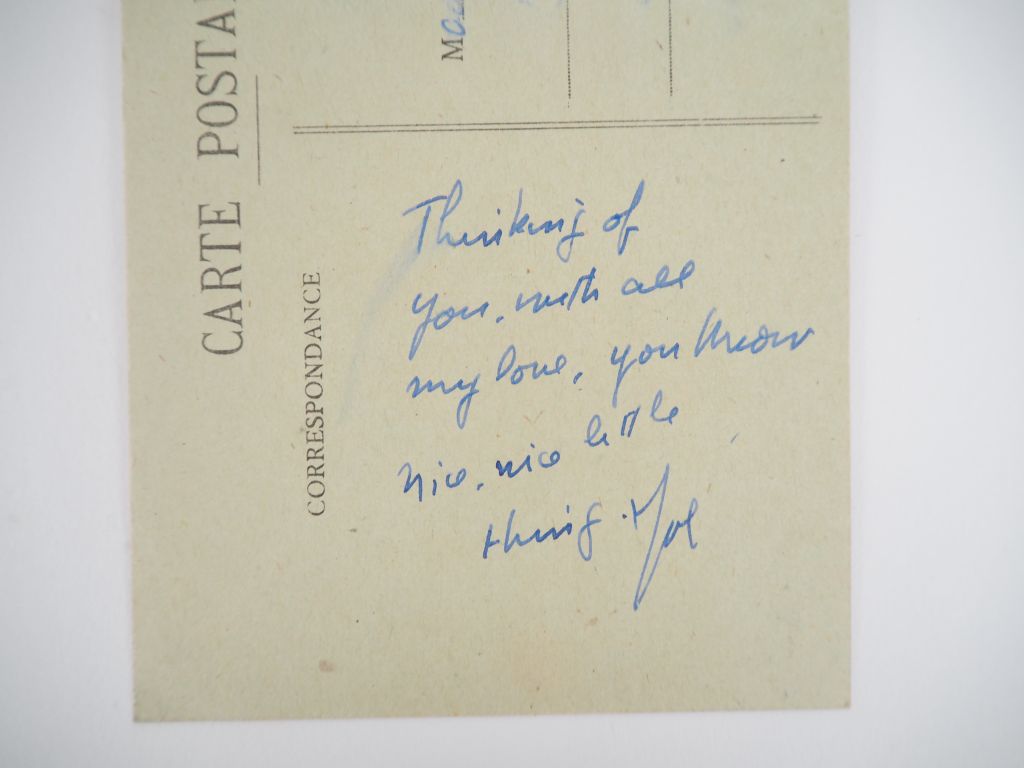 CARTE POSTA
CORRESPONDANCE
Thinking of
you, with all
my love, you know
nice, nice little
thing.